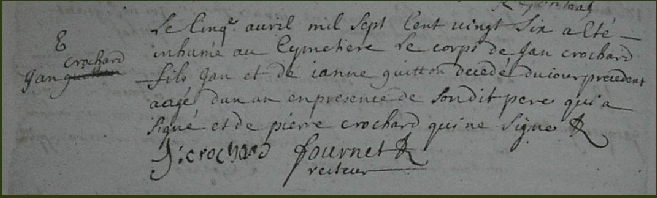 E
crochard
Jan guitton
Le Cinqe. avril mil sept Cent vingt Six a Eté
inhumé au Cymetiere le corps de Jan crochard
fils Jan et de ianne guitton decede du iour precedent
aagé dun an en presence de Son dit pere qui a
Signé et de pierre crochard qui ne Signe
J: crochard fournet
recteur